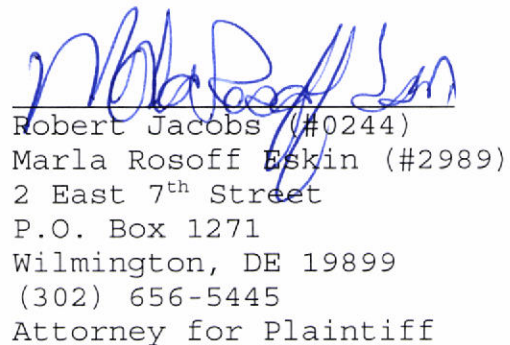 Marla Rosoff Eskin
Robert Jacobs (#0244)
Marla Rosoff Eskin (#2989)
2 East 7th Street
P.O. Box 1271
Wilmington, DE 19899
(302) 656-5445
Attorney for Plaintiff